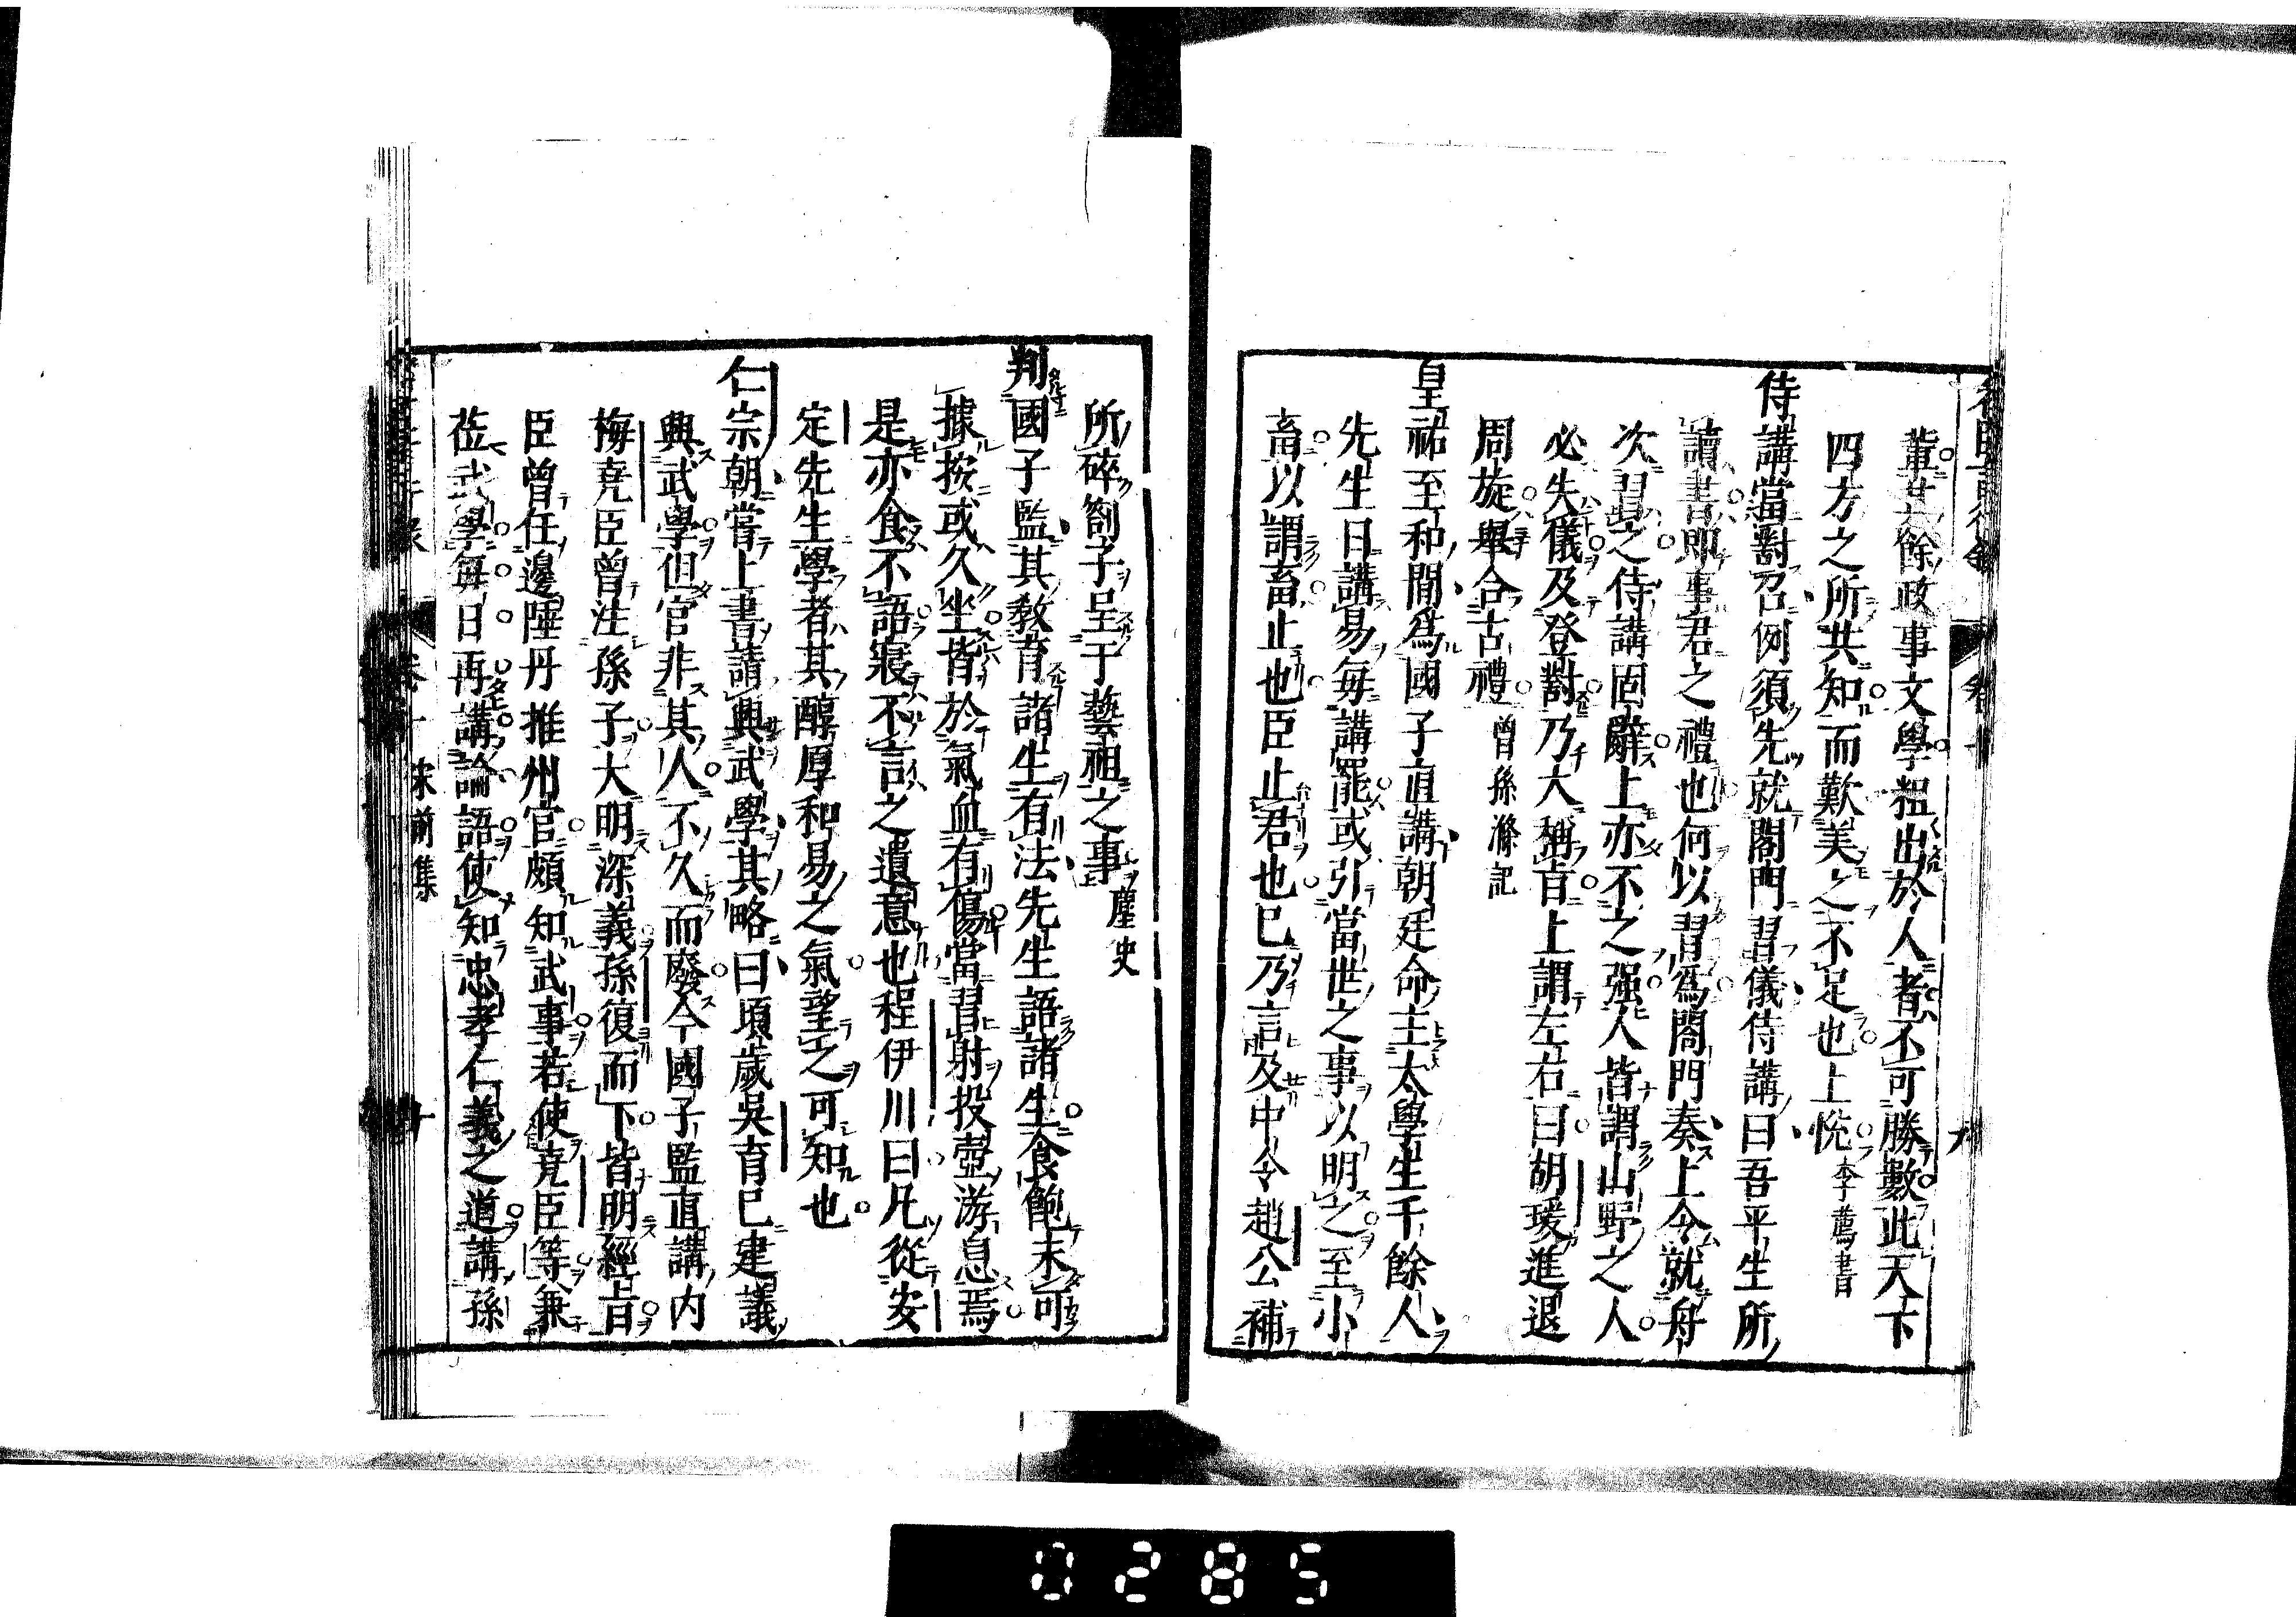 輩其餘政事文學粗出於人者不可勝數此天下
四方之所共知而歎美之不足也上悅李廌書
侍講當對召例須先就閤門習儀侍講曰吾平生所
讀書即事君之禮也何以習爲閤門奏上令就舟
次習之侍講固辭上亦不之强人皆謂山野之人
必失儀及登對乃大稱旨上謂左右曰胡瑗進退
周旋舉合古禮曾孫滌記
皇祐至和間爲國子直講朝廷命主太學生千餘人
先生日講易每講罷或引當世之事以明之至小
畜以謂畜止也臣止君也已乃言及中令趙公補
所碎劄子呈于藝祖之事麈史
判國子監其教育諸生有法先生語諸生食飽未可
據按或久坐皆於氣血有傷當習射投壺游息焉
是亦食不語寢不言之遺意也程伊川曰凡從安
定先生學者其醇厚和易之氣望之可知也
仁宗朝嘗上書請興武學其略曰頃歲吳育已建議
興武學但官非其人不久而廢今國子監直講內
梅堯臣曾注孫子大明深義孫復而下皆明經旨
臣曾任邊陲丹推州官頗知武事若使堯臣等兼
莅武學每日再講論語使知忠孝仁義之道講孫
宋前集